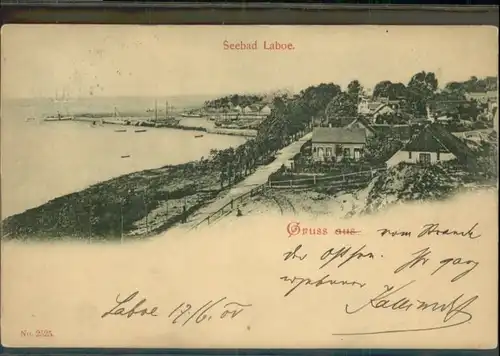 Seebad Laboe.
Gruss aus vom Strand
der Ostsee. Ihr ganz
ergebener
Laboe 17/6. 00
No. 2525.